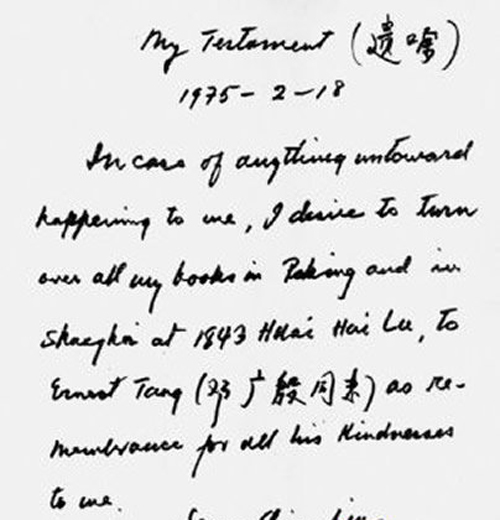 My Testament (遗嘱)
1975-2-18
In case of anything untoward
happening to me, I desire to turn
over all my books in Peking and in
Shanghai at 1843 Huai Hai Lu, to
Ernest Tang (邓广殷同志) as re-
membrance for all his kindnesses
to me.